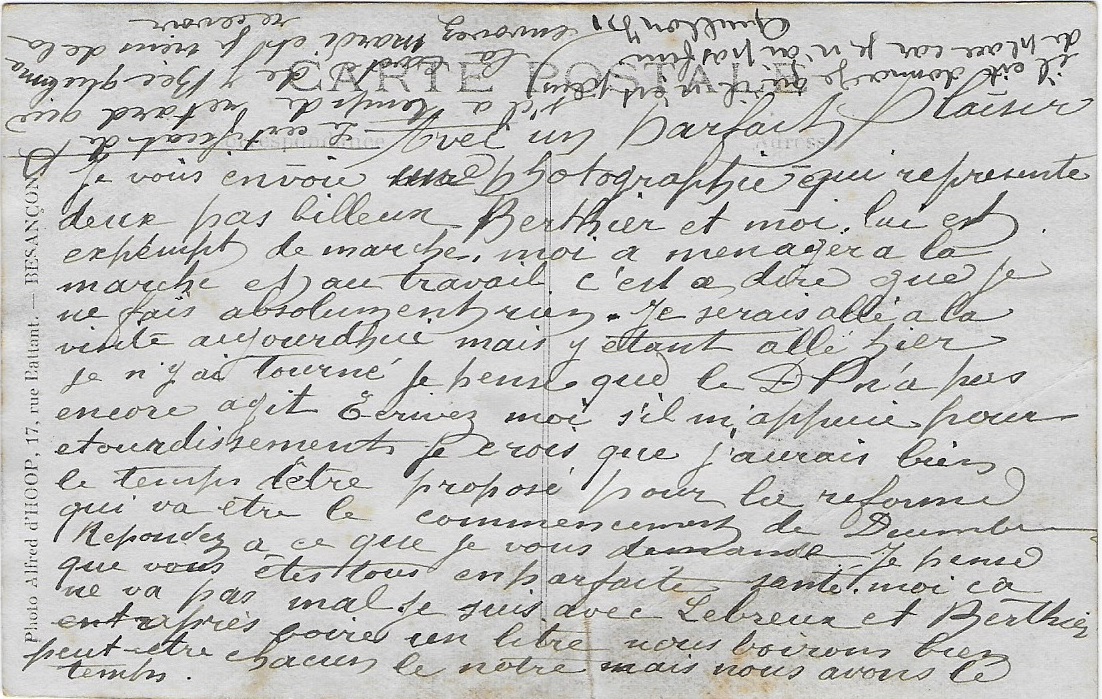 CARTE POSTALE
Correspondance
Adresse
Photo Alfred d'HOOP, 17, rue Battant. — BESANÇON
Avec un parfait Plaisir
Je vous envoie une Photographie qui represente
deux pas billeux Berthier et moi, lui est
expempt de marche. moi a menager a la
marche et au travail c'est a dire que je
ne fais absolument rien. Je serais allé a la
visite aujourdhui mais y etant allé hier
je n'y ai tourné je pense que le D P n'a pas
encore agit Ecrivez moi s'il m'appuie pour
etourdissement je crois que j'aurais bien
le temps d'être proposé pour la reforme
qui va etre le commencement de Decembre
Repondez a ce que je vous demande. Je pense
que vous êtes tous en parfaite santé. moi ca
ne va pas mal. je suis avec Lebreux et Berthier
entrapris boire un litre nous boirons bien
peut-etre chacun le notre mais nous avons le
temps.
Le certificat de
s'il a temps de retard que
la de y Bec
envoyez mardi et je viens de la
recevoir
il est dommage qu'il n'est plus
de place car je n'ai pas fini